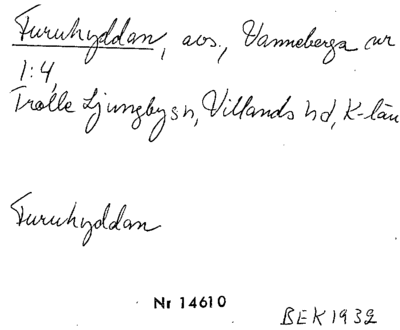 Furuhyddan, avs., Vanneberga nr
1:4,
Trolle Ljungby sn, Villands hd, K-län
Furuhyddan
Nr 14610
BEK 1932